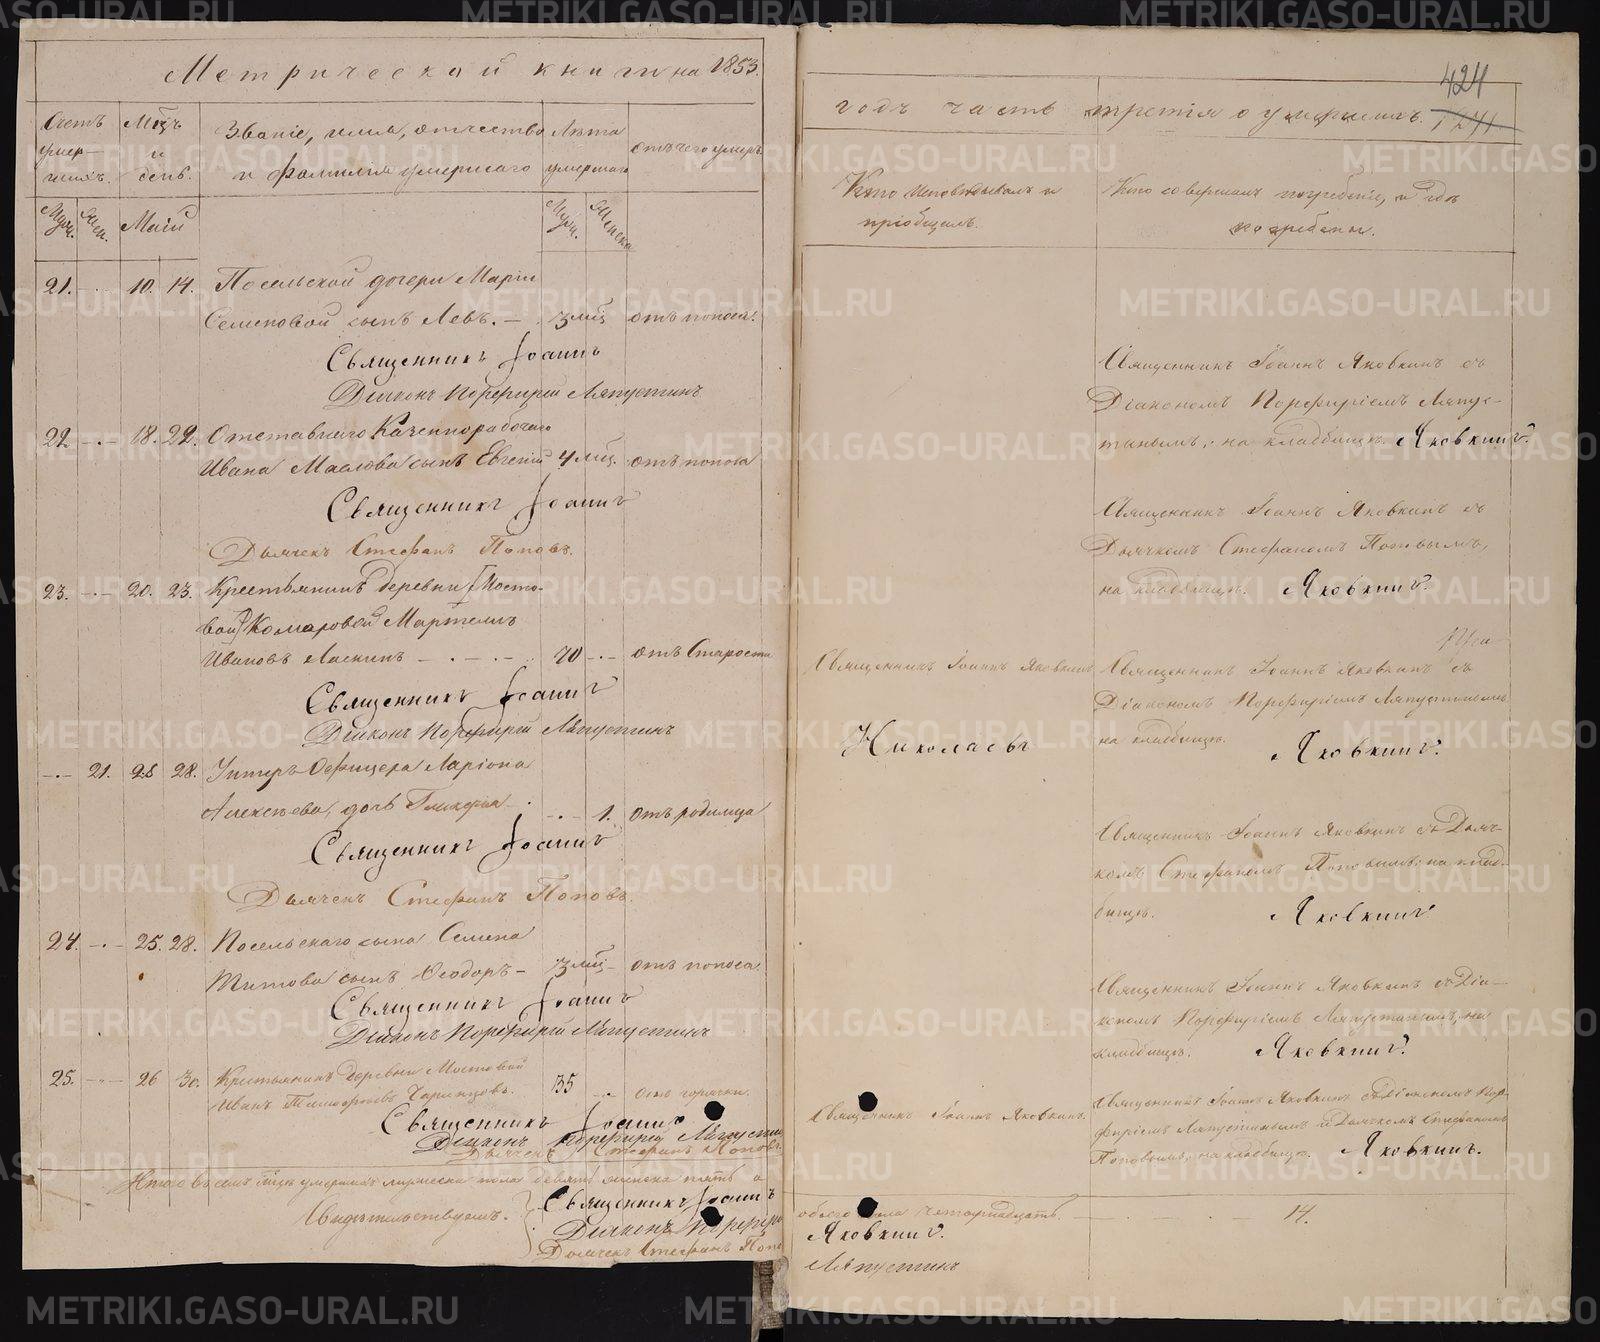 Метрической книги на 1853.
Счетъ умер-шихъ.
Мѣсць и день.
Званіе, имя, отчество и фамилія умершаго
Лѣта умершаго
отъ чего умеръ.
Муж. Жен.
Маій
Муж. Женска
21. - 10. 14. Посельской дочери Маріи
Семеновой сынъ Левъ. - 3 мѣс отъ поноса.
Священникъ Іоаннъ
Діаконъ Порфирій Ляпустинъ
22. - 18. 22. Отставнаго
Ивана Маслова сынъ Евгеній 4 мѣс. отъ поноса
Священникъ Іоаннъ
Дьячекъ Стефанъ Поповъ.
23. - 20. 23. Крестьянинъ деревни [Мосто-
вой] Комаровой
Ивановъ 70 - отъ Старости
Священникъ Іоаннъ
Діаконъ Порфирій Ляпустинъ
- 21. 25 28. Унтеръ-Офицера Ларіона
Алексѣева, дочь Гликерія - 1. отъ родимца
Священникъ Іоаннъ
Дьячекъ Стефанъ Поповъ.
24. - 25. 28. Посельскаго сына Семена
Титова сынъ Ѳеодоръ - 3 мѣс - отъ поноса.
Священникъ Іоаннъ
Діаконъ Порфирій Ляпустинъ
25. - 26 30. Крестьянинъ деревни Мостовой
Иванъ Тимофеевъ 35 отъ горячки.
Священникъ Іоаннъ
Діаконъ Порфирій Ляпустинъ
Дьячекъ Стефанъ Поповъ.
умершихъ мужеска пола девять женска пять а
Свидѣтельствуемъ.
Священникъ Іоаннъ
Діаконъ Порфирій
Дьячекъ Стефанъ Попо
424
1271
годъ часть третія о умершихъ.
Кто исповѣдывалъ и
пріобщалъ.
Кто совершалъ погребеніе, и гдѣ
погребены.
Священникъ Іоаннъ Яковкинъ съ
Діакономъ Порфиріемъ Ляпус-
тинымъ, на кладбищѣ. Яковкинъ.
Священникъ Іоаннъ Яковкинъ съ
Дьячкомъ Стефаномъ Поповымъ,
на кладбищѣ. Яковкинъ.
Священникъ Іоаннъ Яковкинъ
Николаевъ
Священникъ Іоаннъ Яковкинъ съ
Діакономъ Порфиріемъ Ляпустинымъ
на кладбищѣ. Яковкинъ.
Священникъ Іоаннъ Яковкинъ съ Дьяч-
комъ Стефаномъ Поповымъ, на клад-
бищѣ. Яковкинъ
Священникъ Іоаннъ Яковкинъ съ Діа-
кономъ Порфиріемъ Ляпустинымъ, на
кладбищѣ. Яковкинъ.
Священникъ Іоаннъ Яковкинъ.
Священникъ Іоаннъ Яковкинъ съ Діакономъ Пор-
фиріемъ Ляпустинымъ и Дьячкомъ Стефаномъ
Поповымъ, на кладбищѣ. Яковкинъ.
обоего пола четырнадцать. - 14.
Яковкинъ.
Ляпустинъ
METRIKI.GASO-URAL.RU